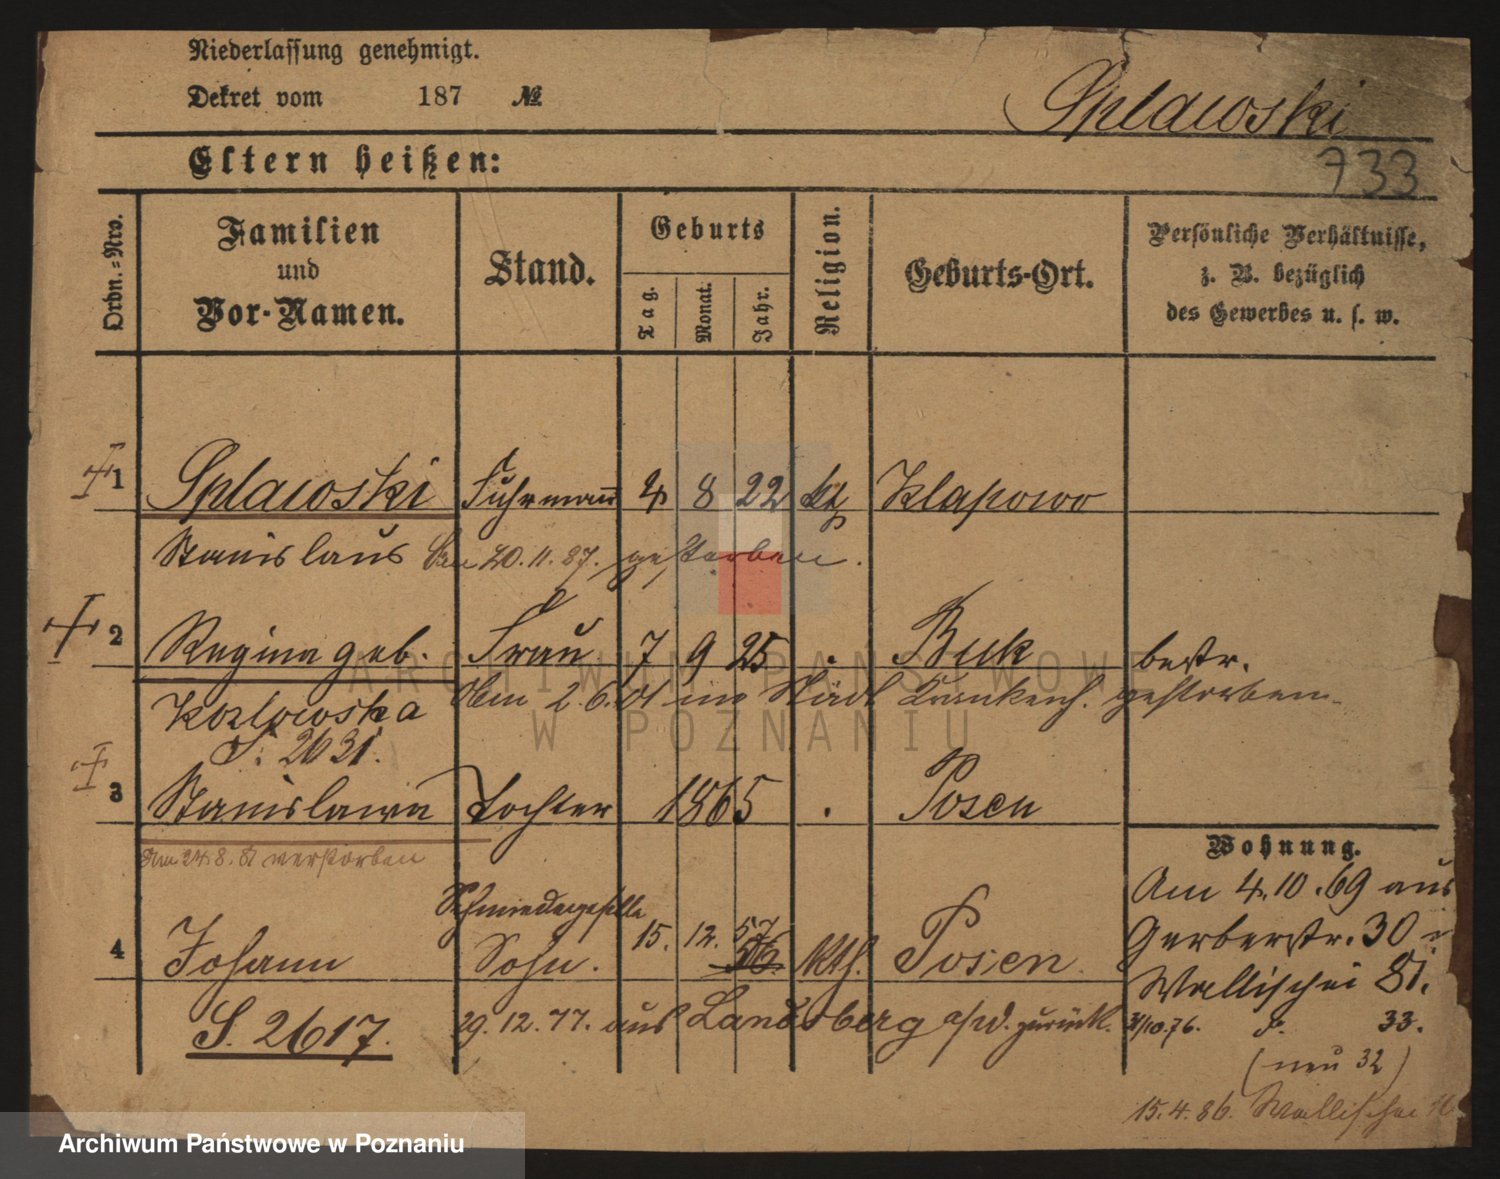 Niederlassung genehmigt.
Dekret vom 187 №
Splawski
Eltern heißen:
733
Ordn.-Nro.
Familien und Vor-Namen.
Stand.
Geburts
Tag.
Monat.
Jahr.
Religion.
Geburts-Ort.
Persönliche Verhältnisse, z. B. bezüglich des Gewerbes u. s. w.
1 Splawski Fuhrmann 4 8 22 kt Klapowo
Stanislaus 20.11.87. gestorben.
2 Regina geb. Frau 7 9 25 . Buk bestr.
Kozlowska Am 2.6.01 im Städt Krankenh. gestorben.
S: 2631.
3 Stanislawa Tochter 1865 . Posen
Am 24.8.81 verstorben
Wohnung.
Am 4.10.69 aus
Gerberstr. 30
Wallischei 81.
Schmiedegeselle
4 Johann Sohn. 15. 12. 57 56. Kth. Posen.
S. 2617. 29.12.77. aus Landsberg a/d. zurück.
3/10.76. d. 33.
(neu 32)
15.4.86. Wallischei
ARCHIWUM PAŃSTWOWE
W POZNANIU
Archiwum Państwowe w Poznaniu